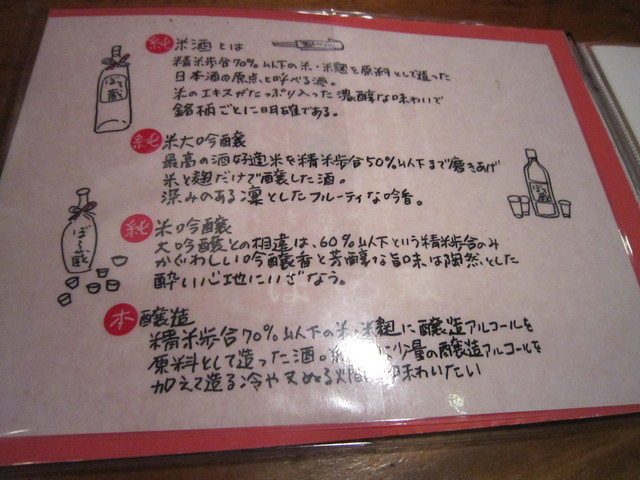 純米酒とは
精米歩合70%以下の米・米麹を原料として造った
日本酒の原点と呼べる酒。
米のエキスがたっぷり入った濃醇な味わいで
銘柄ごとに明確である。
純米大吟醸
最高の酒好適米を精米歩合50%以下まで磨きあげ
米と麹だけで醸した酒。
深みのある凛としたフルーティな吟香。
純米吟醸
大吟醸との相違は、60%以下という精米歩合のみ
かぐわしい吟醸香と芳醇な旨味は陶然とした
酔い心地にいざなう。
本醸造
精米歩合70%以下の米・米麹に醸造アルコールを
原料として造った酒。 少量の醸造アルコールを
加えて造る冷や又ぬる燗 味わいたい
ぼち蔵
ぼち蔵
ぼち蔵